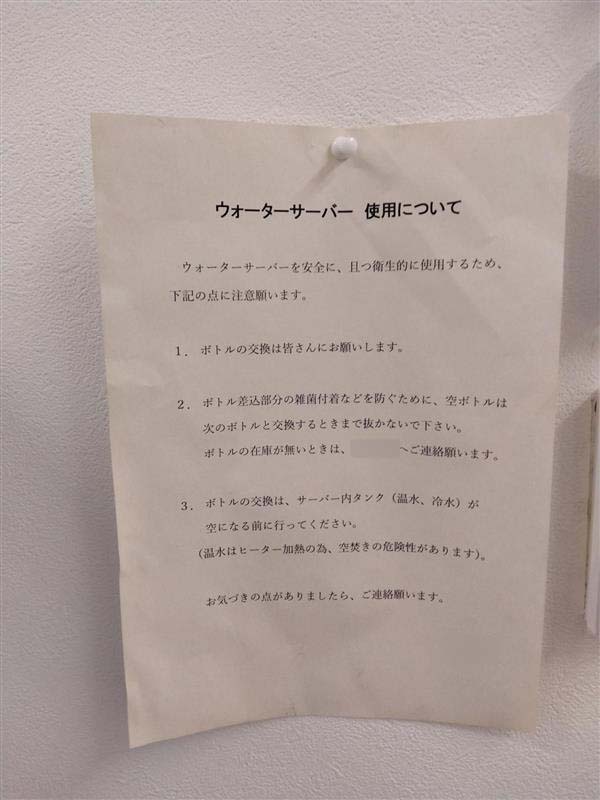 ウォーターサーバー 使用について
ウォーターサーバーを安全に、且つ衛生的に使用するため、
下記の点に注意願います。
1. ボトルの交換は皆さんにお願いします。
2. ボトル差込部分の雑菌付着などを防ぐために、空ボトルは
次のボトルと交換するときまで抜かないで下さい。
ボトルの在庫が無いときは、 へご連絡願います。
3. ボトルの交換は、サーバー内タンク（温水、冷水）が
空になる前に行ってください。
(温水はヒーター加熱の為、空焚きの危険性があります)。
お気づきの点がありましたら、ご連絡願います。